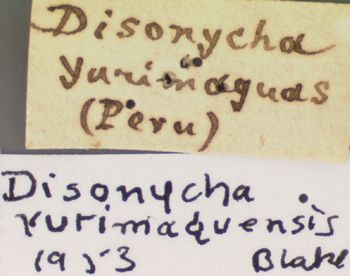 Disonycha
yurimaguas
(Peru)
Disonycha
yurimaquensis
1953 Blake